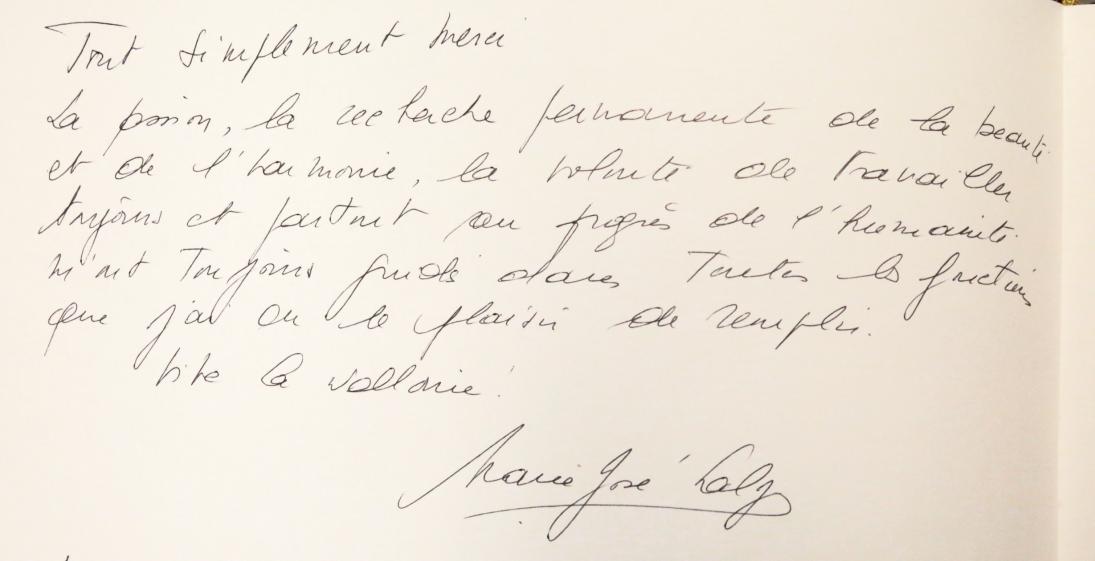 Tout simplement merci
La passion, la recherche permanente de la beauté
et de l'harmonie, la volonté de travailler
toujours et partout au progrès de l'humanité
m'ont toujours guidé dans toutes les fonctions
que j'ai eu le plaisir de remplir.
Vive la Wallonie!
Marie José Laloy